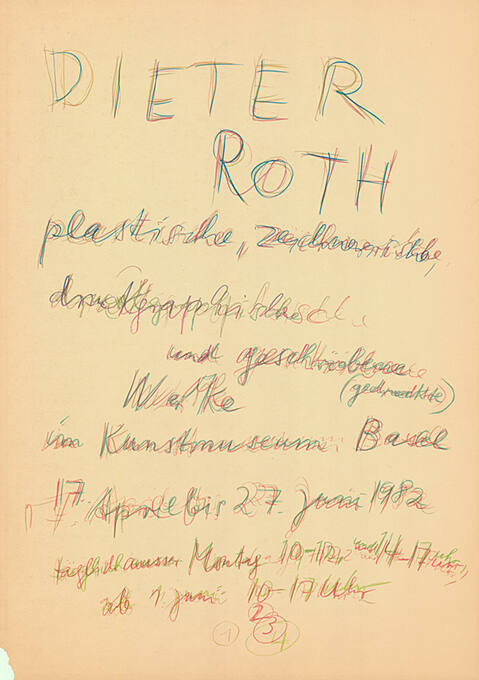 DIETER
ROTH
plastische, zeichnerische,
druckgraphische
und geschriebene
Werke (gedruckte)
im Kunstmuseum Basel
17. April bis 27. Juni 1982
täglich ausser Montag 10-12, und 14-17 Uhr,
ab 1. Juni 10-17 Uhr
1 2 3 4